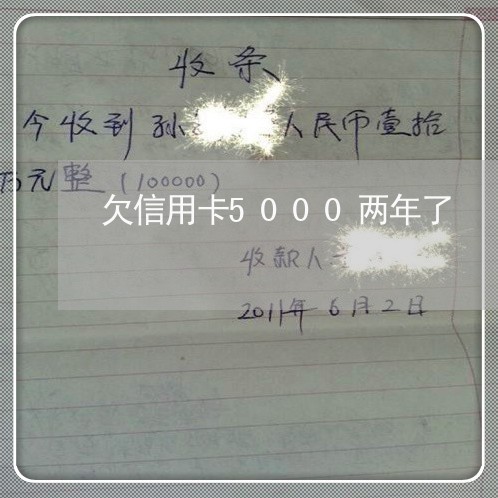 收条
今收到孙 人民币壹拾
万元整（100000）
欠信用卡5000两年了
收款人
2011年6月2日